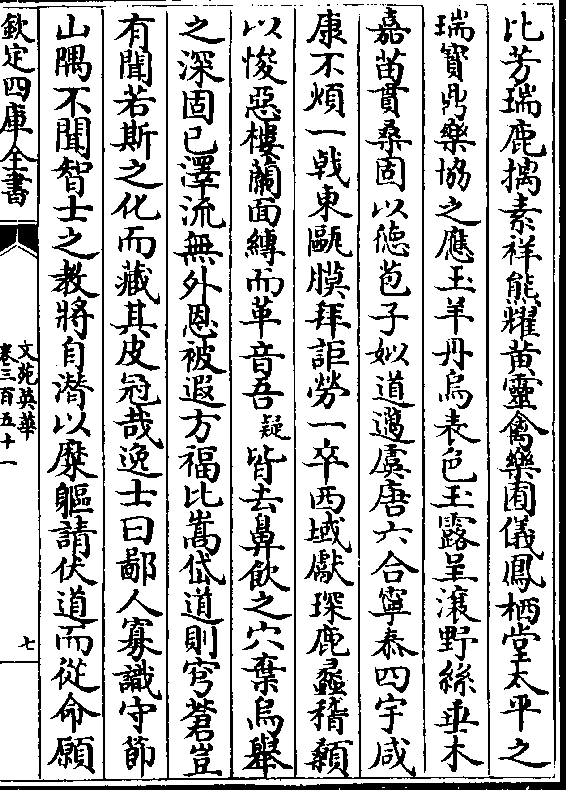 比芳瑞鹿摛素祥熊耀黄靈禽樂囿儀鳳栖堂太平之
瑞寶鼎樂協之應玉羊丹烏表色玉露呈滋野絲垂木
嘉苗貫桑固以德苞子姒道邁虞唐六合寧泰四宇咸
康不煩一戟東甌膜拜詎勞一卒西域獻琛鹿蠡稽顙
以悛惡樓蘭面縛而革音吾疑皆去鼻飲之穴棄鳥舉
之深固已澤流無外恩被遐方福比嵩岱道則穹蒼豈
有聞若斯之化而藏其皮冠哉逸士曰鄙人寡識守節
山隅不聞智士之教將自潛以糜軀請伏道而從命願
欽定四庫全書
文苑英華
卷三百五十一
七